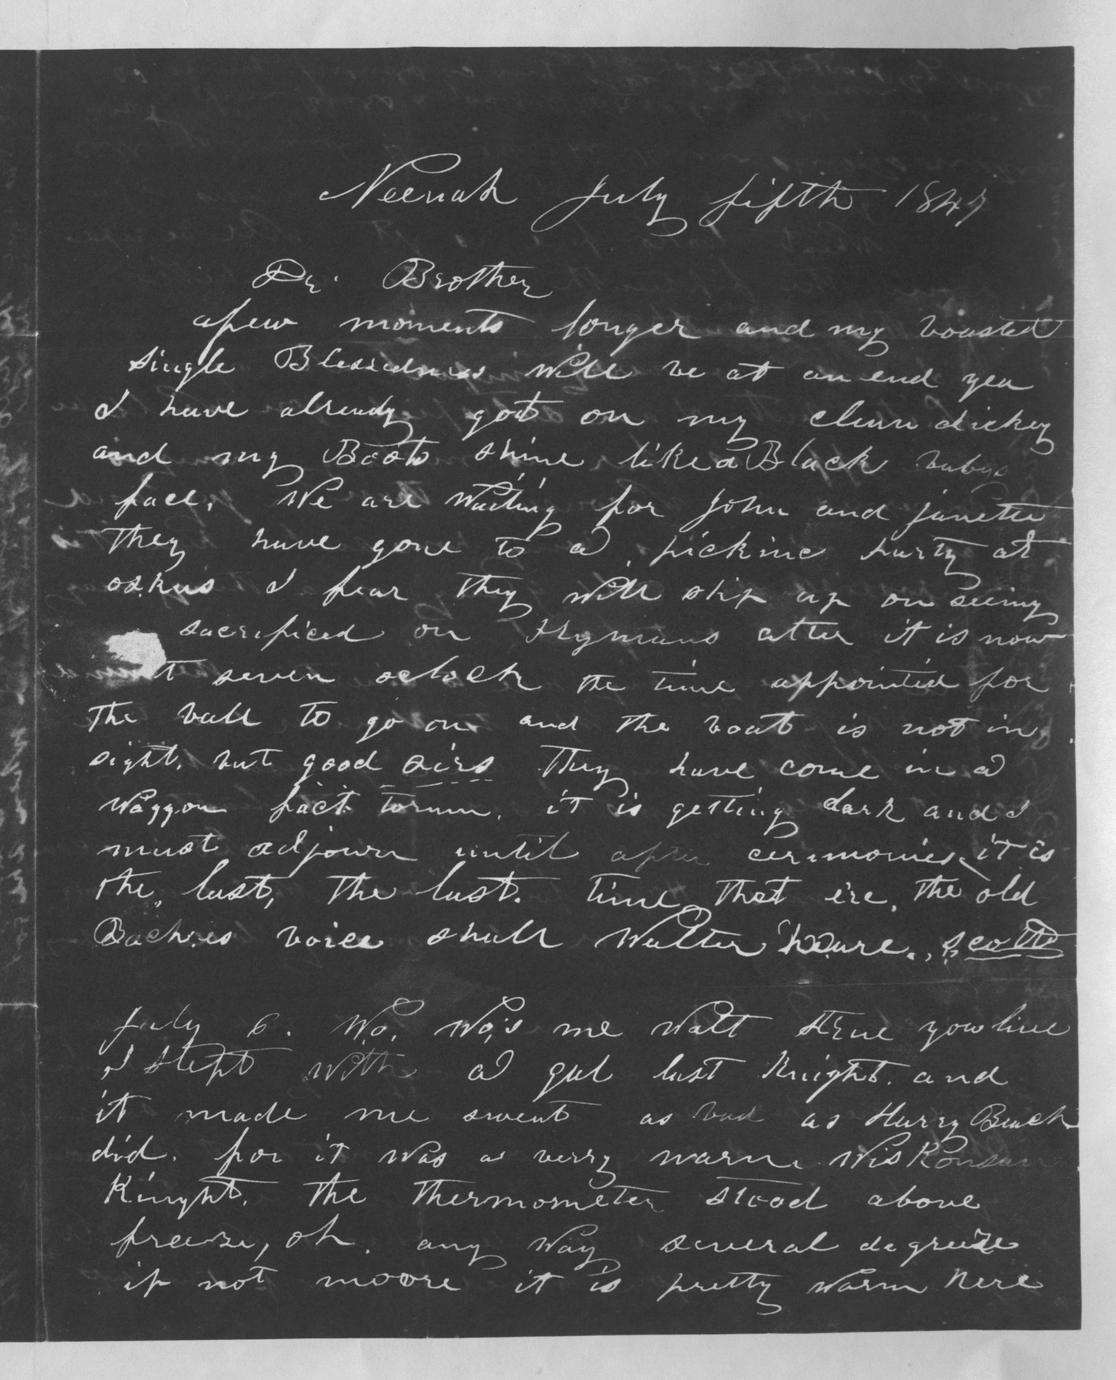 Neenah July fifth 1847
Dr. Brother
afew moments longer and my boasted
single Blessedness will be at an end yea
I have already got on my clean dickey
and my Boots shine like a Black babys
face. We are waiting for John and janette
they have gone to a pickinc party at
oskus I fear they will slip up on seeing
sacrificed on Hymans alter it is now
t seven oclock the time appointed for
the ball to go on and the boat is not in
sight. but good airs They have come in a
waggon fact torum. it is getting dark and I
must adjourn until after cerimonies, it is
the, last, the last. time that ere, the old
Bach,es voice shall Walter heare., scotts
July 6. Wo, Wo,s me Walt STEne you live
I slept with a gal last Knight. and
it made me sweat as bad as Harry Beach
did. for it was a verry warm WisKonsan
Kinght. the thermometer stood above
freeze, oh. any way several degreeze
if not moore it is pretty warm here